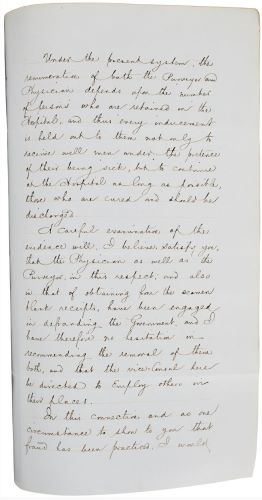 Under the present system, the
remuneration of both the Purveyor and
Physician depends upon the number
of persons who are retained in the
Hospital, and thus every inducement
is held out to them not only to
receive well men under the pretence
of their being sick, but to continue
at the Hospital as long as possible,
those who are cured and should be
discharged.
A careful examination of the
evidence will, I believe, satisfy you,
that the Physician as well as the
Purveyor, in this respect, and also
in that of obtaining from the seamen
blank receipts, have been engaged
in defrauding the Government, and I
have therefore no hesitation in
recommending the removal of them
both, and that the vice-Consul here
be directed to employ others in
their places.
In this connection and as one
circumstance to show to you that
fraud has been practiced, I would